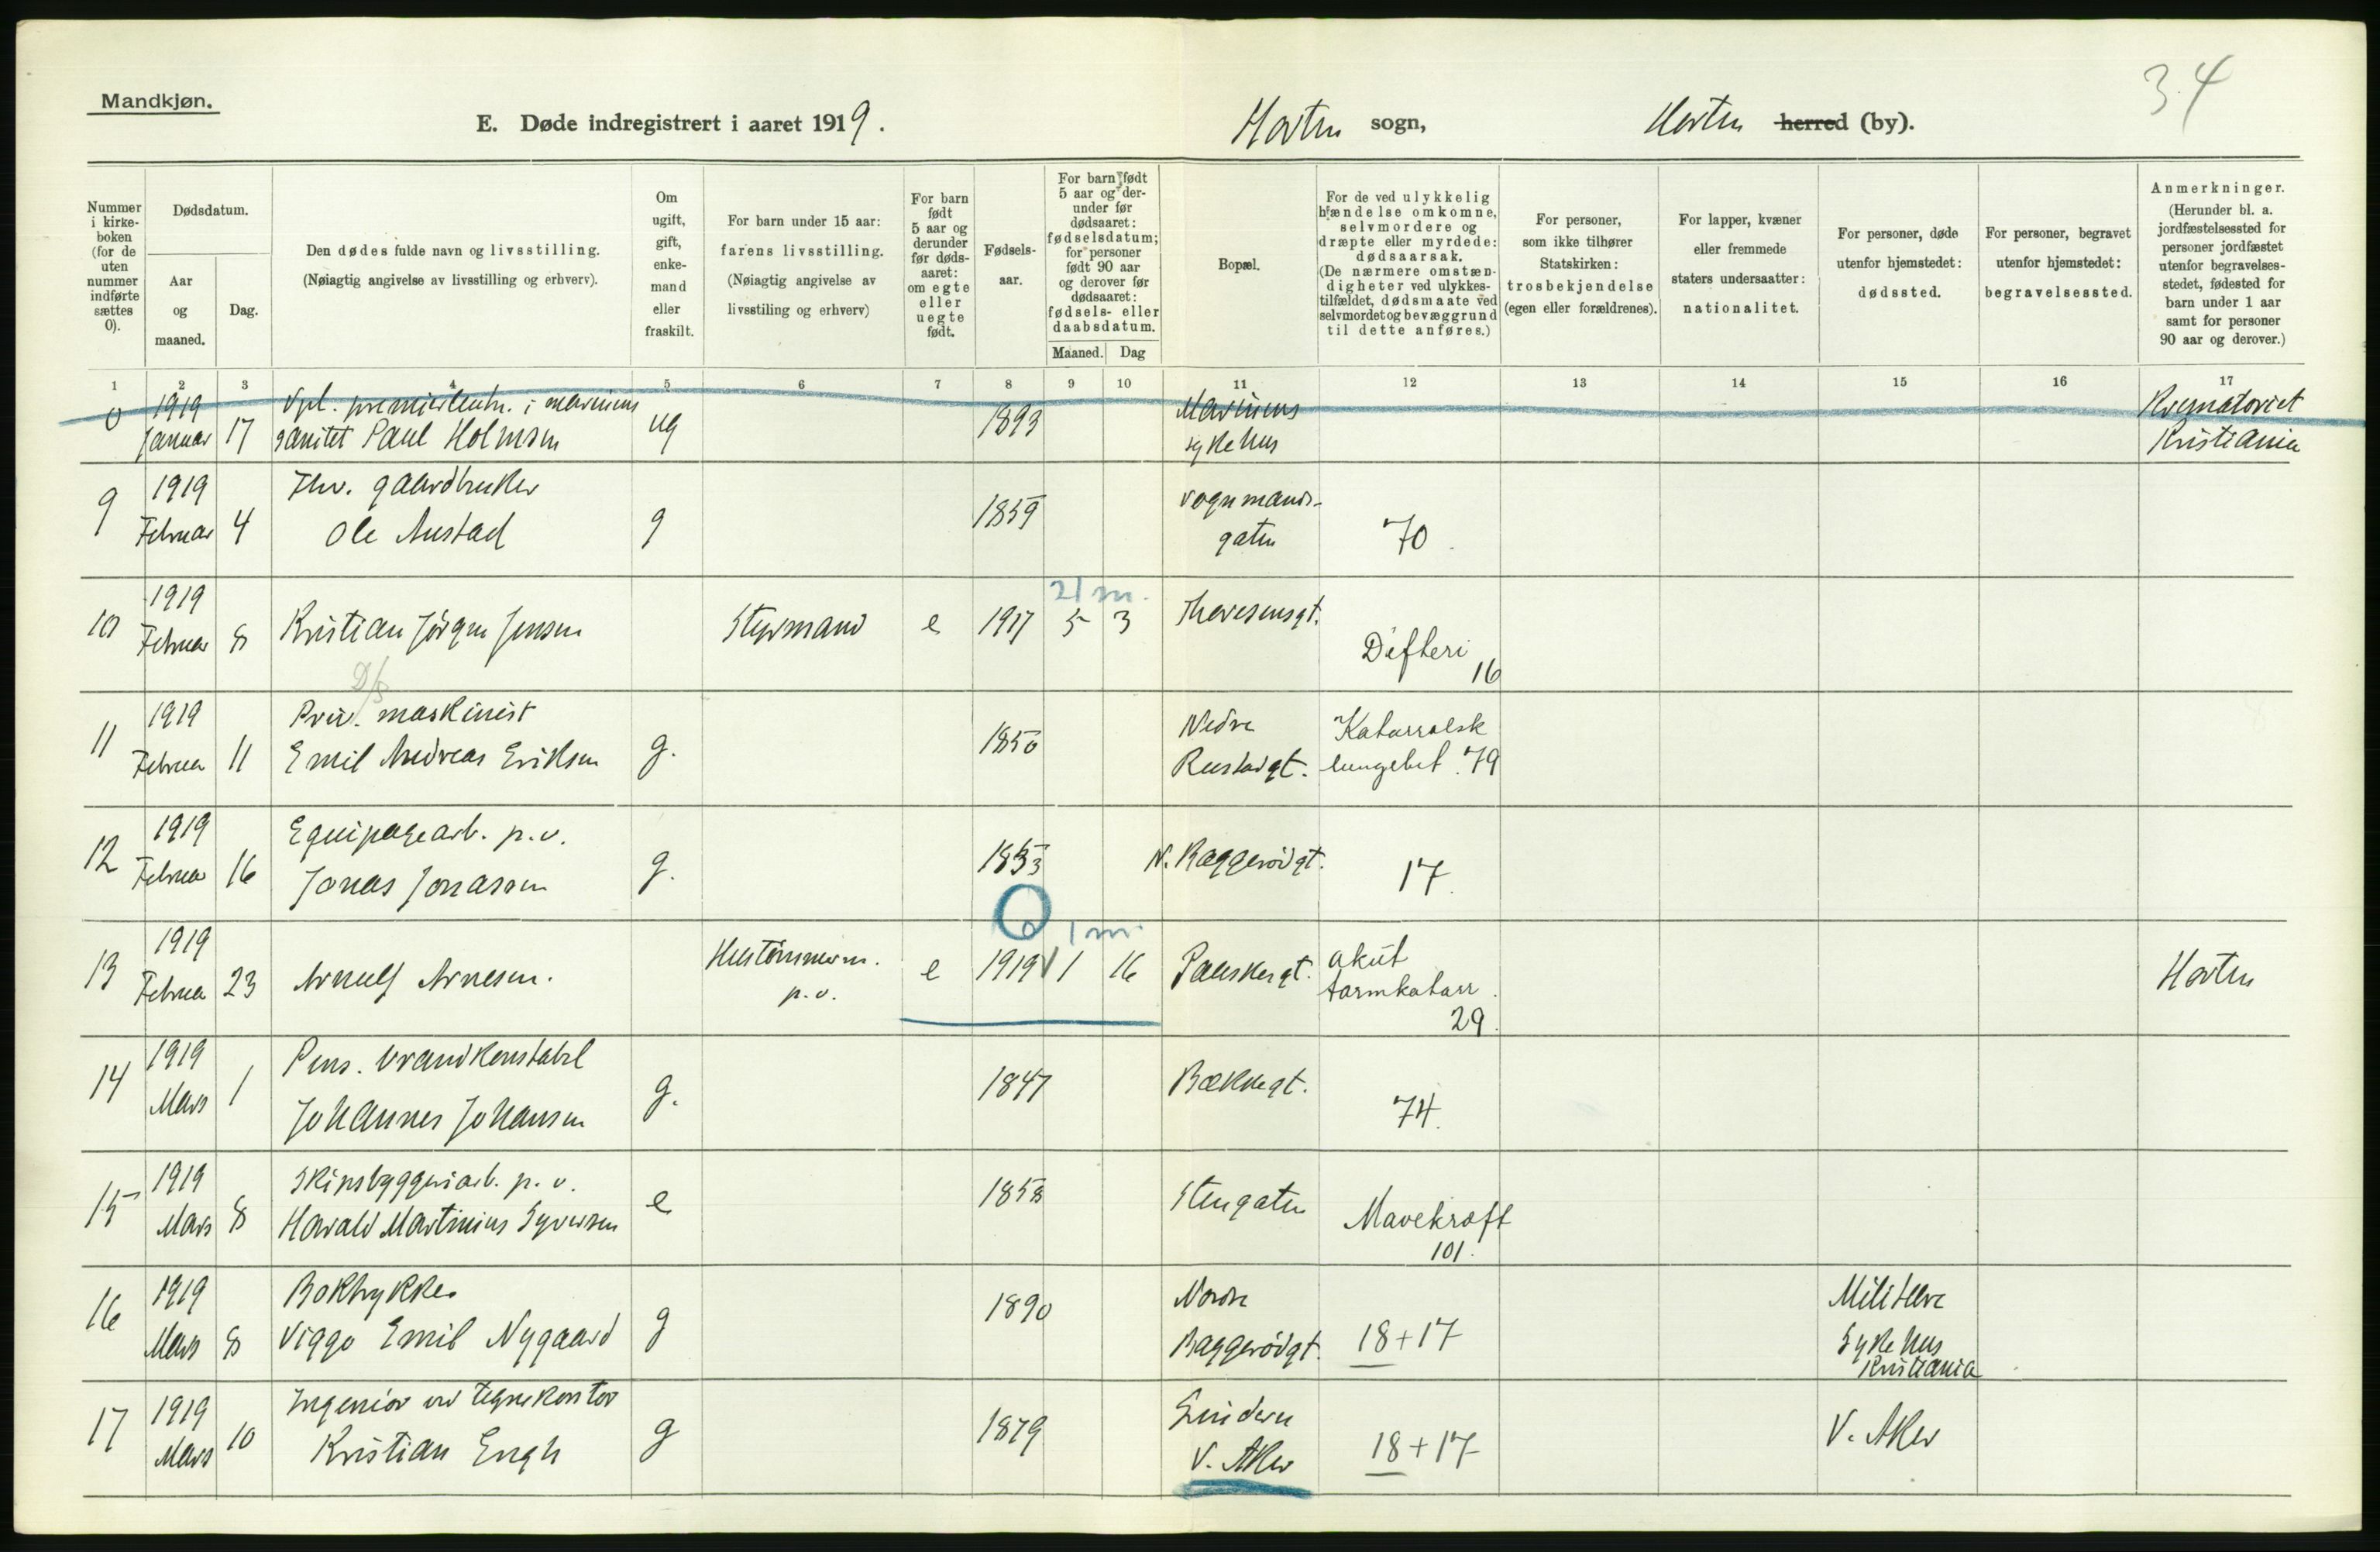 Mandkjøn.
34
E. Døde indregistrert i aaret 1919.
Horten sogn,
Horten herred (by).
Nummer i kirke-boken (for de uten nummer indførte sættes 0).
Dødsdatum.
Aar og maaned.
Dag.
Den dødes fulde navn og livsstilling.
(Nøiagtig angivelse av livsstilling og erhverv).
Om ugift, gift, enke-mand eller fraskilt.
For barn under 15 aar:
farens livsstilling.
(Nøiagtig angivelse av livsstiling og erhverv)
For barn født 5 aar og derunder før døds-aaret: om egte eller uegte født.
Fødsels-aar.
For barn født 5 aar og der-under før dødsaaret: fødselsdatum; for personer født 90 aar og derover før dødsaaret: fødsels- eller daabsdatum.
Maaned. Dag
Bopæl.
For de ved ulykkelig hændelse omkomne, selvmordere og dræpte eller myrdede: dødsaarsak.
(De nærmere omstæn-digheter ved ulykkes-tilfældet, dødsmaate ved selvmordet og bevæggrund til dette anføres.)
For personer, som ikke tilhører Statskirken: trosbekjendelse (egen eller forældrenes).
For lapper, kvæner eller fremmede staters undersaatter: nationalitet.
For personer, døde utenfor hjemstedet: dødssted.
For personer, begravet utenfor hjemstedet: begravelsessted.
Anmerkninger.
(Herunder bl. a. jordfæstelsessted for personer jordfæstet utenfor begravelses-stedet, fødested for barn under 1 aar samt for personer 90 aar og derover.)
1 2 3 4 5 6 7 8 9 10 11 12 13 14 15 16 17
0 1919 Januar 17 Vpl. premierløitn. i marinens sanitet Paul Holmsen ug 1893 Marinens sykehus Krematoriet Kristiania
9 1919 Februar 4 Fhv. gaardbruker Ole Austad g 1859 Vognmands-gaten 70.
10 1919 Februar 8 Kristian Jörgen Jensen Styrmand e 1917 21 m. 5 3 Theresensgt. Difteri 16
D/S
11 1919 Februar 11 Priv. maskinist Emil Andreas Eriksen g. 1850 Nedre Rustadgt. Katarralsk lungebet. 79
12 1919 Februar 16 Equipagearb. p.v. Jonas Jonassen g. 1853 N. Baggerödgt. 17.
13 1919 Februar 23 Arnulf Arnesen. Hustömmerm. p.v. e 1919 0 1 m. 1 16 Falskengt. akut tarmkatarr. 29. Horten
14 1919 Mars 1 Pens. brandkonstabel Johannes Johansen g. 1847 Bækkegt. 74.
15 1919 Mars 8 Skipsbyggeriarb. p.v. Harald Martinius Syversen e 1858 Stengaten Mavekræft 101.
16 1919 Mars 8 Boktrykker Viggo Emil Nygaard g 1890 Nordre Baggerödgt. 18+17 Militære Sykehus Kristiania
17 1919 Mars 10 Ingeniör ved tegnekontor Kristian Engh g 1879 Lindern V. Aker 18+17 V. Aker